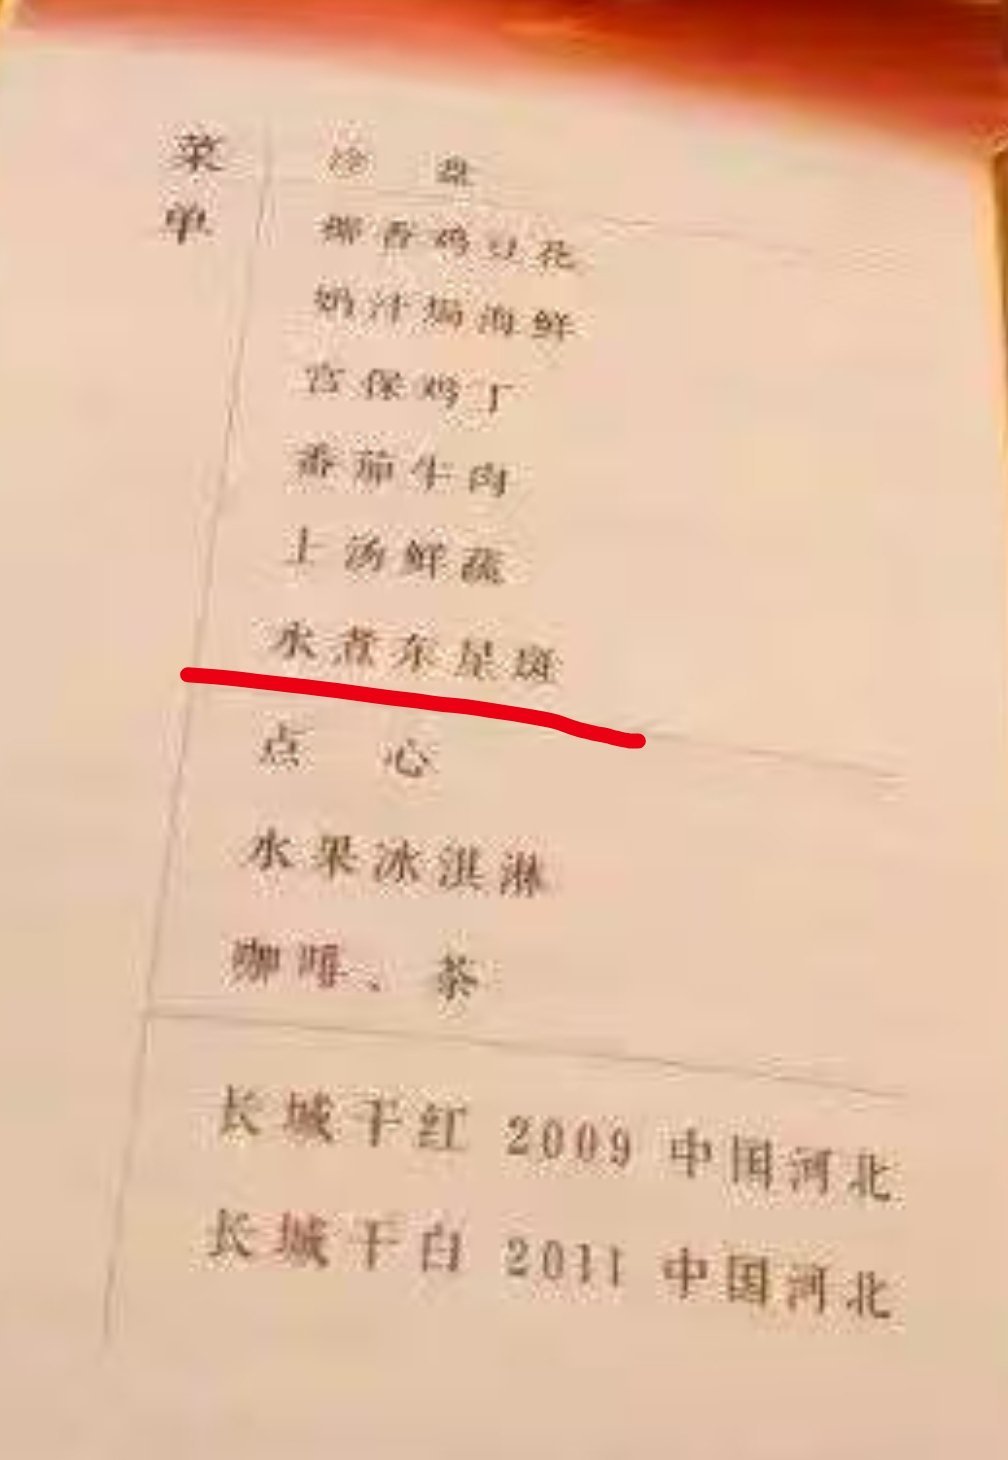 菜单
冷 盘
椰香鸡豆花
奶汁焗海鲜
宫保鸡丁
番茄牛肉
上汤鲜蔬
水煮东星斑
点 心
水果冰淇淋
咖啡、茶
长城干红 2009 中国河北
长城干白 2011 中国河北